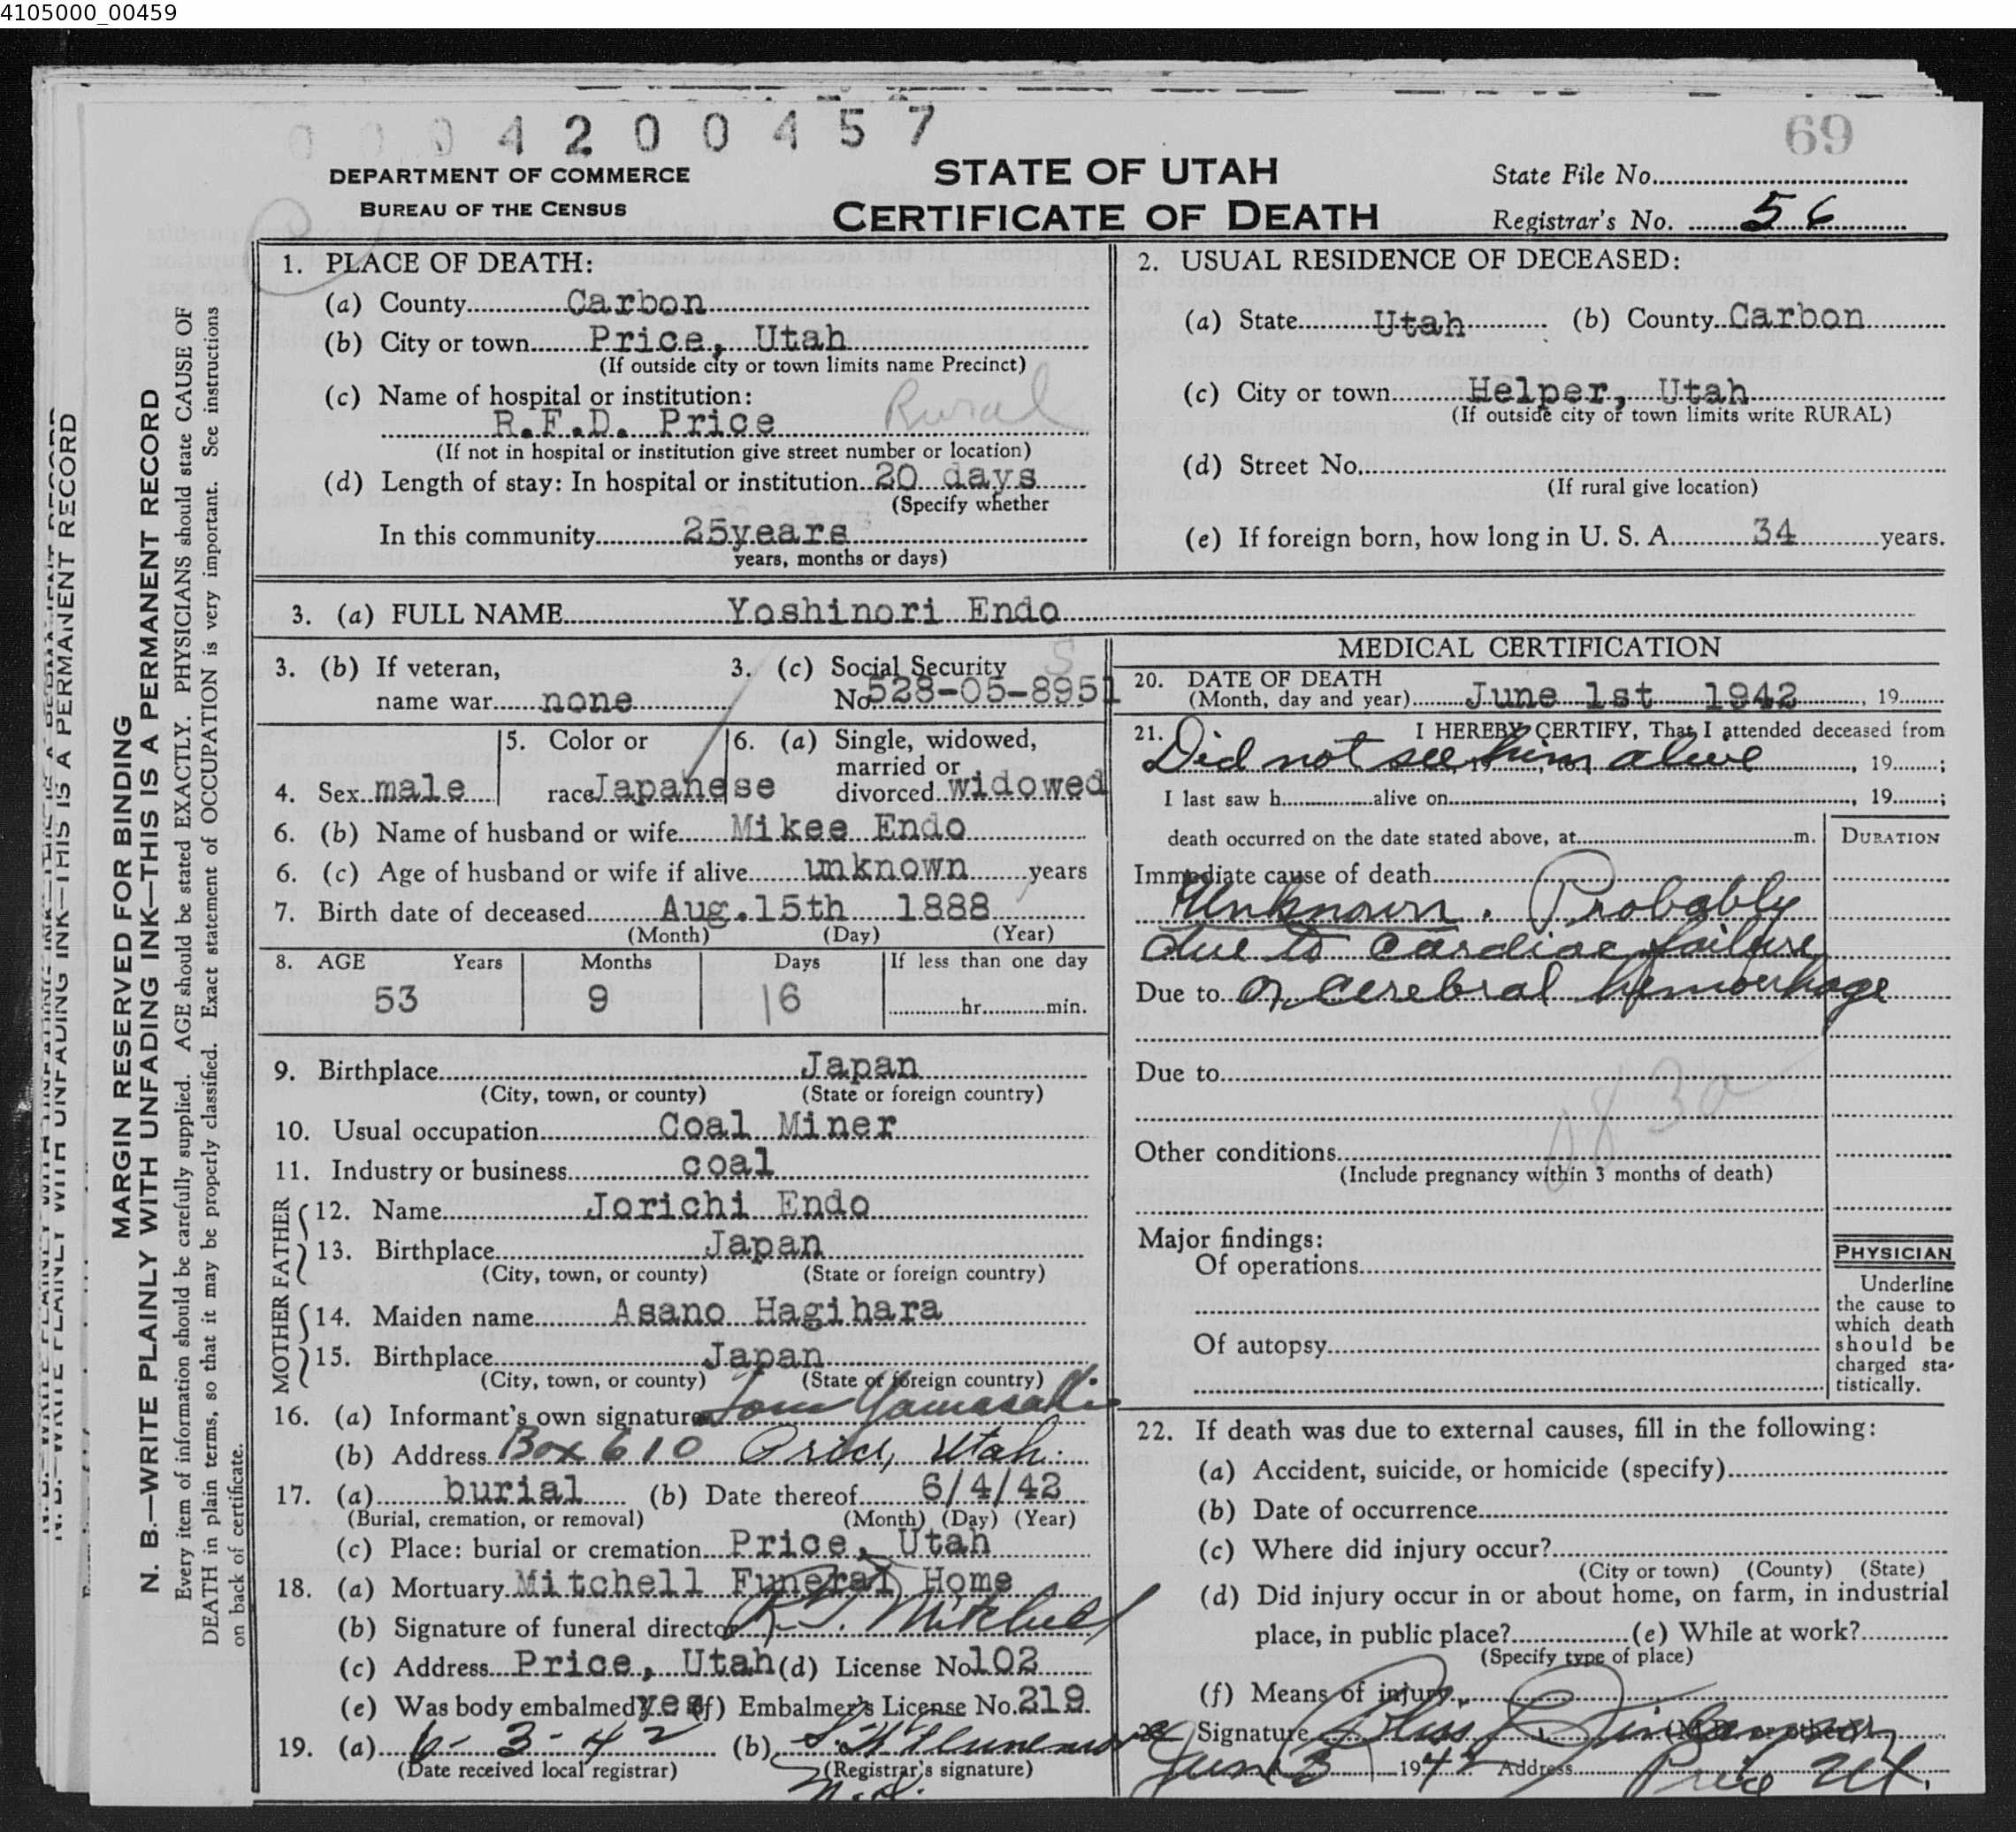 4105000_00459
0004200457
69
DEPARTMENT OF COMMERCE
BUREAU OF THE CENSUS
STATE OF UTAH
CERTIFICATE OF DEATH
State File No.
Registrar's No. 56
MARGIN RESERVED FOR BINDING
N. B.—WRITE PLAINLY WITH UNFADING INK—THIS IS A PERMANENT RECORD
Every item of information should be carefully supplied. AGE should be stated EXACTLY. PHYSICIANS should state CAUSE OF
DEATH in plain terms, so that it may be properly classified. Exact statement of OCCUPATION is very important. See instructions
on back of certificate.
1. PLACE OF DEATH:
(a) County Carbon
(b) City or town Price, Utah
(If outside city or town limits name Precinct)
(c) Name of hospital or institution:
R.F.D. Price Rural
(If not in hospital or institution give street number or location)
(d) Length of stay: In hospital or institution 20 days
(Specify whether
In this community 25years
years, months or days)
2. USUAL RESIDENCE OF DECEASED:
(a) State Utah (b) County Carbon
(c) City or town Helper, Utah
(If outside city or town limits write RURAL)
(d) Street No.
(If rural give location)
(e) If foreign born, how long in U. S. A. 34 years.
3. (a) FULL NAME Yoshinori Endo
3. (b) If veteran,
name war none
3. (c) Social Security
No 528-05-8951
4. Sex male
5. Color or
race Japanese
6. (a) Single, widowed,
married or
divorced widowed
6. (b) Name of husband or wife Mikee Endo
6. (c) Age of husband or wife if alive unknown years
7. Birth date of deceased Aug.15th 1888
(Month) (Day) (Year)
8. AGE Years Months Days If less than one day
53 9 16 hr. min.
9. Birthplace Japan
(City, town, or county) (State or foreign country)
10. Usual occupation Coal Miner
11. Industry or business coal
FATHER
12. Name Jorichi Endo
13. Birthplace Japan
(City, town, or county) (State or foreign country)
MOTHER
14. Maiden name Asano Hagihara
15. Birthplace Japan
(City, town, or county) (State or foreign country)
16. (a) Informant's own signature Tom Yamasaki
(b) Address Box 610 Price, Utah.
17. (a) burial (b) Date thereof 6/4/42
(Burial, cremation, or removal) (Month) (Day) (Year)
(c) Place: burial or cremation Price, Utah
18. (a) Mortuary Mitchell Funeral Home
(b) Signature of funeral director Mitchell
(c) Address Price, Utah (d) License No 102
(e) Was body embalmed? yes (f) Embalmer's License No. 219
19. (a) 6-3-42 (b)
(Date received local registrar) (Registrar's signature)
MEDICAL CERTIFICATION
20. DATE OF DEATH
(Month, day and year) June 1st 1942, 19
21. I HEREBY CERTIFY, That I attended deceased from
Did not see him alive, 19 ;
I last saw h alive on , 19 ;
death occurred on the date stated above, at m.
DURATION
Immediate cause of death
Unknown. Probably
due to cardiac failure
Due to or cerebral hemorrhage
Due to
Other conditions
(Include pregnancy within 3 months of death)
Major findings:
Of operations
Of autopsy
PHYSICIAN
Underline
the cause to
which death
should be
charged sta-
tistically.
22. If death was due to external causes, fill in the following:
(a) Accident, suicide, or homicide (specify)
(b) Date of occurrence
(c) Where did injury occur?
(City or town) (County) (State)
(d) Did injury occur in or about home, on farm, in industrial
place, in public place? (e) While at work?
(Specify type of place)
(f) Means of injury
23. Signature Bliss L. Finlayson (M.D. or other)
Jun 3 1942 Address Price Ut.